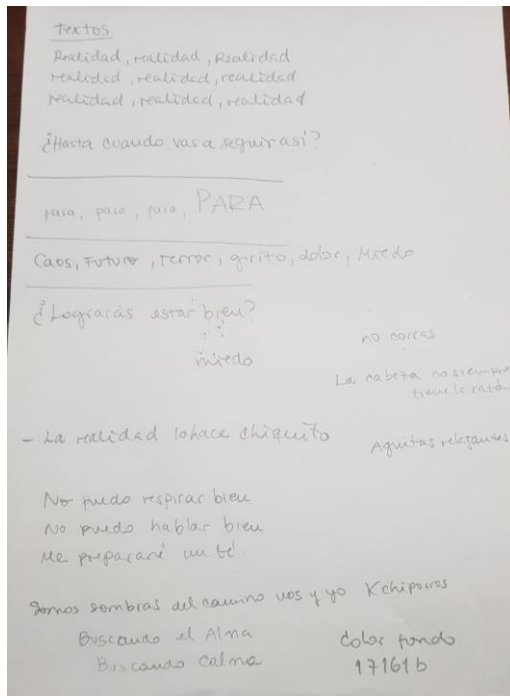 Textos
Realidad, realidad, Realidad
realidad, realidad, realidad
realidad, realidad, realidad
¿Hasta cuando vas a seguir así?
para, para, para, PARA
Caos, Futuro, terror, grito, dolor, Miedo
¿Lograrás estar bien?
miedo
no corras
La cabeza no siempre
tiene la razón
- La realidad lo hace chiquito
Aguitas relajantes
No puedo respirar bien
No puedo hablar bien
Me prepararé un té.
Somos sombras del camino vos y yo Kchiporros
Buscando el Alma
Buscando calma
Color fondo
17161b